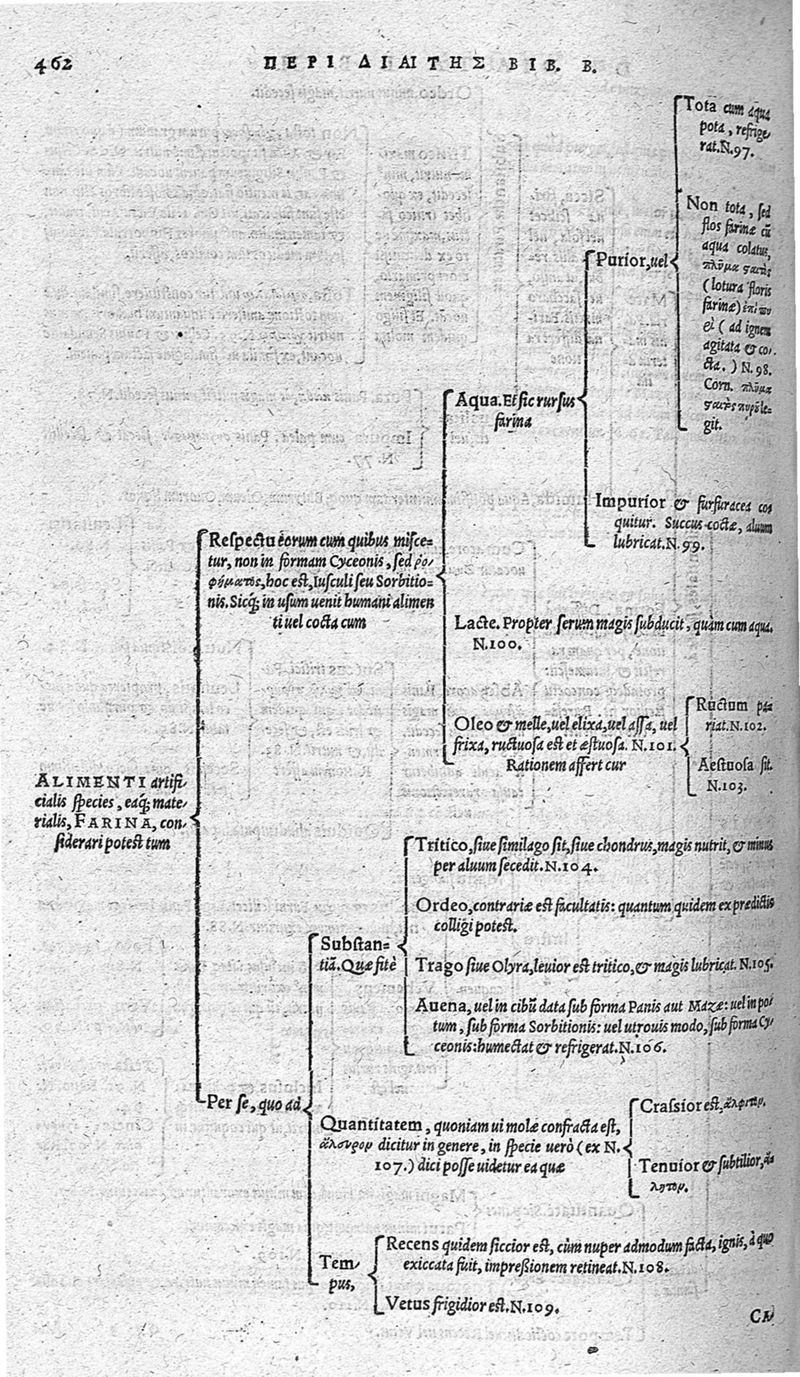 462
ΠΕΡΙ ΔΙΑΙΤΗΣ ΒΙΒ. Β.
ALIMENTI artifi
cialis species, eaq; mate-
rialis, FARINA, con-
siderari potest tum
Respectu eorum cum quibus misce-
tur, non in formam Cyceonis, sed ῥο-
φύματος, hoc est, Iusculi seu Sorbitio-
nis. Sicq; in usum uenit humani alimen
ti uel cocta cum
Aqua. Et sic rursus
farina
Purior, uel
Tota cum aqua
pota, refrige-
rat. N. 97.
Non tota, sed
flos farinæ cũ
aqua colatus,
πλῦμα
(lotura floris
farinæ)
(ad ignem
agitata & co-
cta.) N. 98.
Corn. πλῦμα
le-
git.
Impurior & furfuracea co
quitur. Succus coctæ, aluum
lubricat. N. 99.
Lacte. Propter serum magis subducit, quàm cum aqua.
N. 100.
Oleo & melle, uel elixa, uel assa, uel
frixa, ructuosa est et æstuosa. N. 101.
Rationem affert cur
Ructum pa
riat. N. 102.
Aestuosa sit.
N. 103.
Per se, quo ad
Substan-
tiã. Quæ sitè
Tritico, siue similago sit, siue chondrus, magis nutrit, & minus
per aluum secedit. N. 104.
Ordeo, contrariæ est facultatis: quantum quidem ex prædictis
colligi potest.
Trago siue Olyra, leuior est tritico, & magis lubricat. N. 105.
Auena, uel in cibũ data sub forma Panis aut Mazæ: uel in po-
tum, sub forma Sorbitionis: uel utrouis modo, sub forma Cy-
ceonis: humectat & refrigerat. N. 106.
Quantitatem, quoniam ui molæ confracta est,
ἄλευρον dicitur in genere, in specie uerò (ex N.
107.) dici posse uidetur ea quæ
Crassior est, ἄλφιτον.
Tenuior & subtilior, ἄ
λητον.
Tem-
pus,
Recens quidem siccior est, cùm nuper admodum facta, ignis, à quo
exiccata fuit, impreßionem retineat. N. 108.
Vetus frigidior est. N. 109.